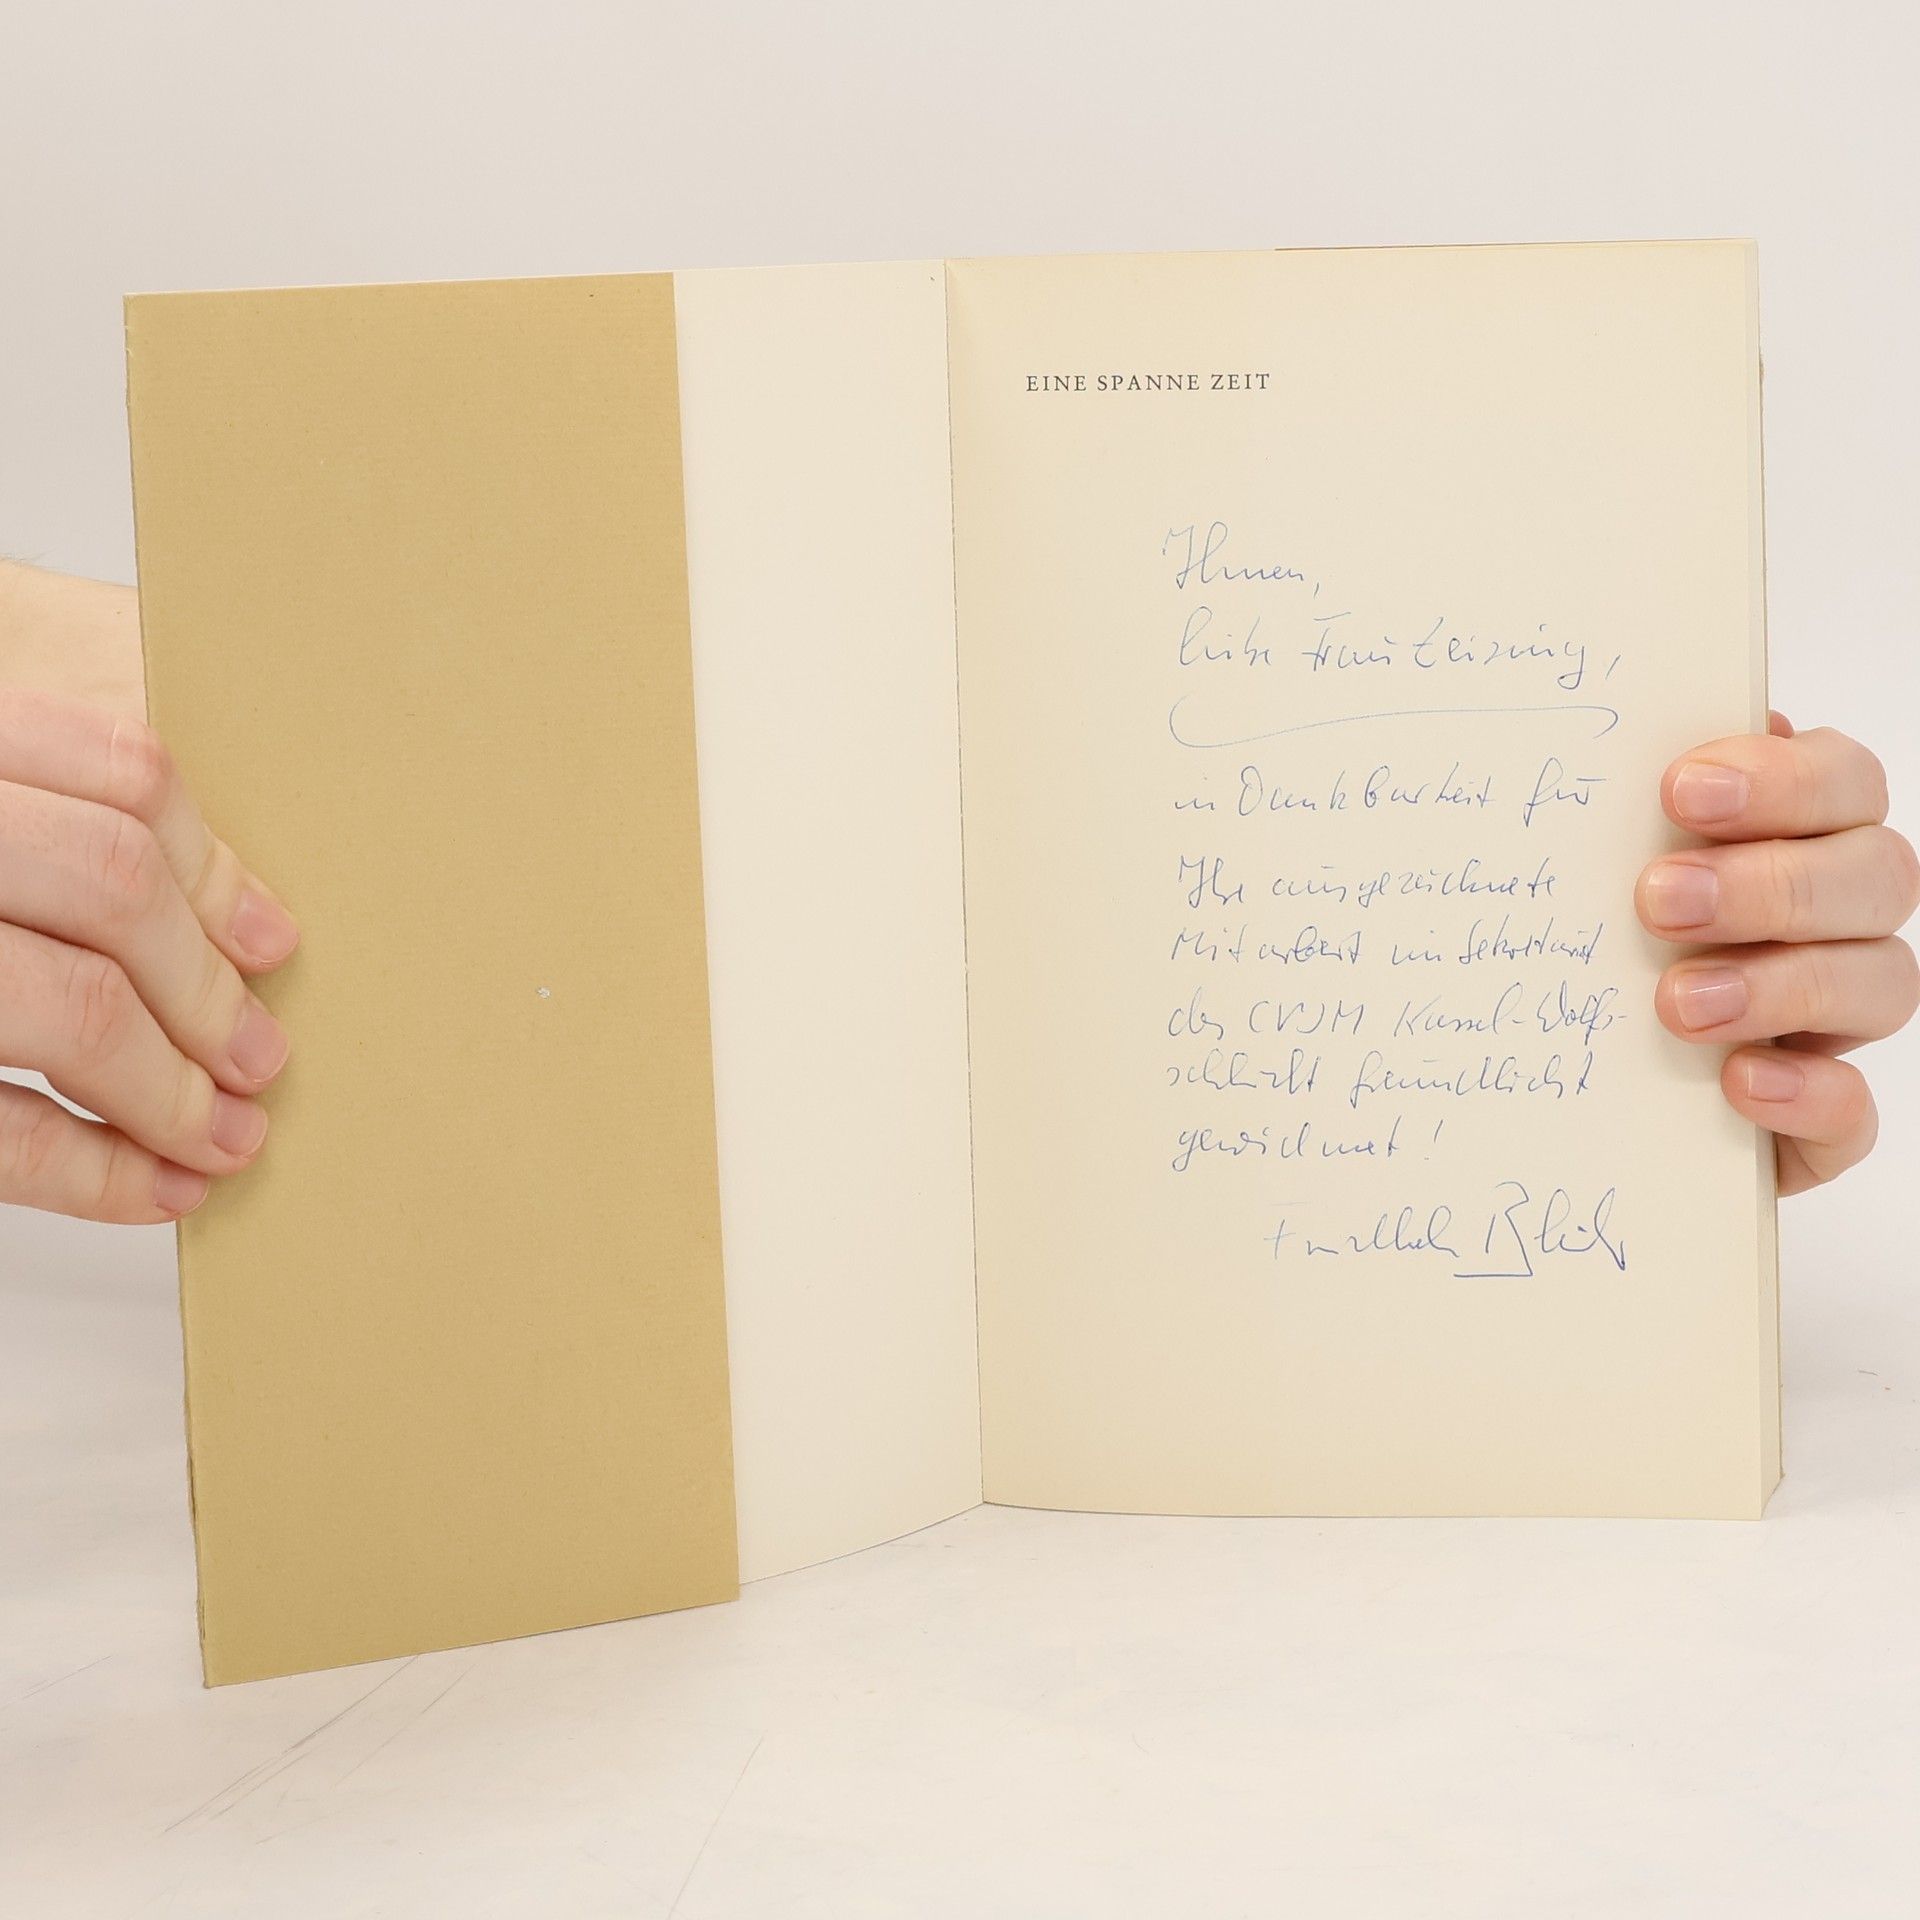 EINE SPANNE ZEIT
Ihnen,
liebe Frau Zeising,
in Dankbarkeit für
Ihre ausgezeichnete
Mitarbeit im Sekretariat
des CVJM Kassel-Wolfs-
schlucht freundlichst
gewidmet!